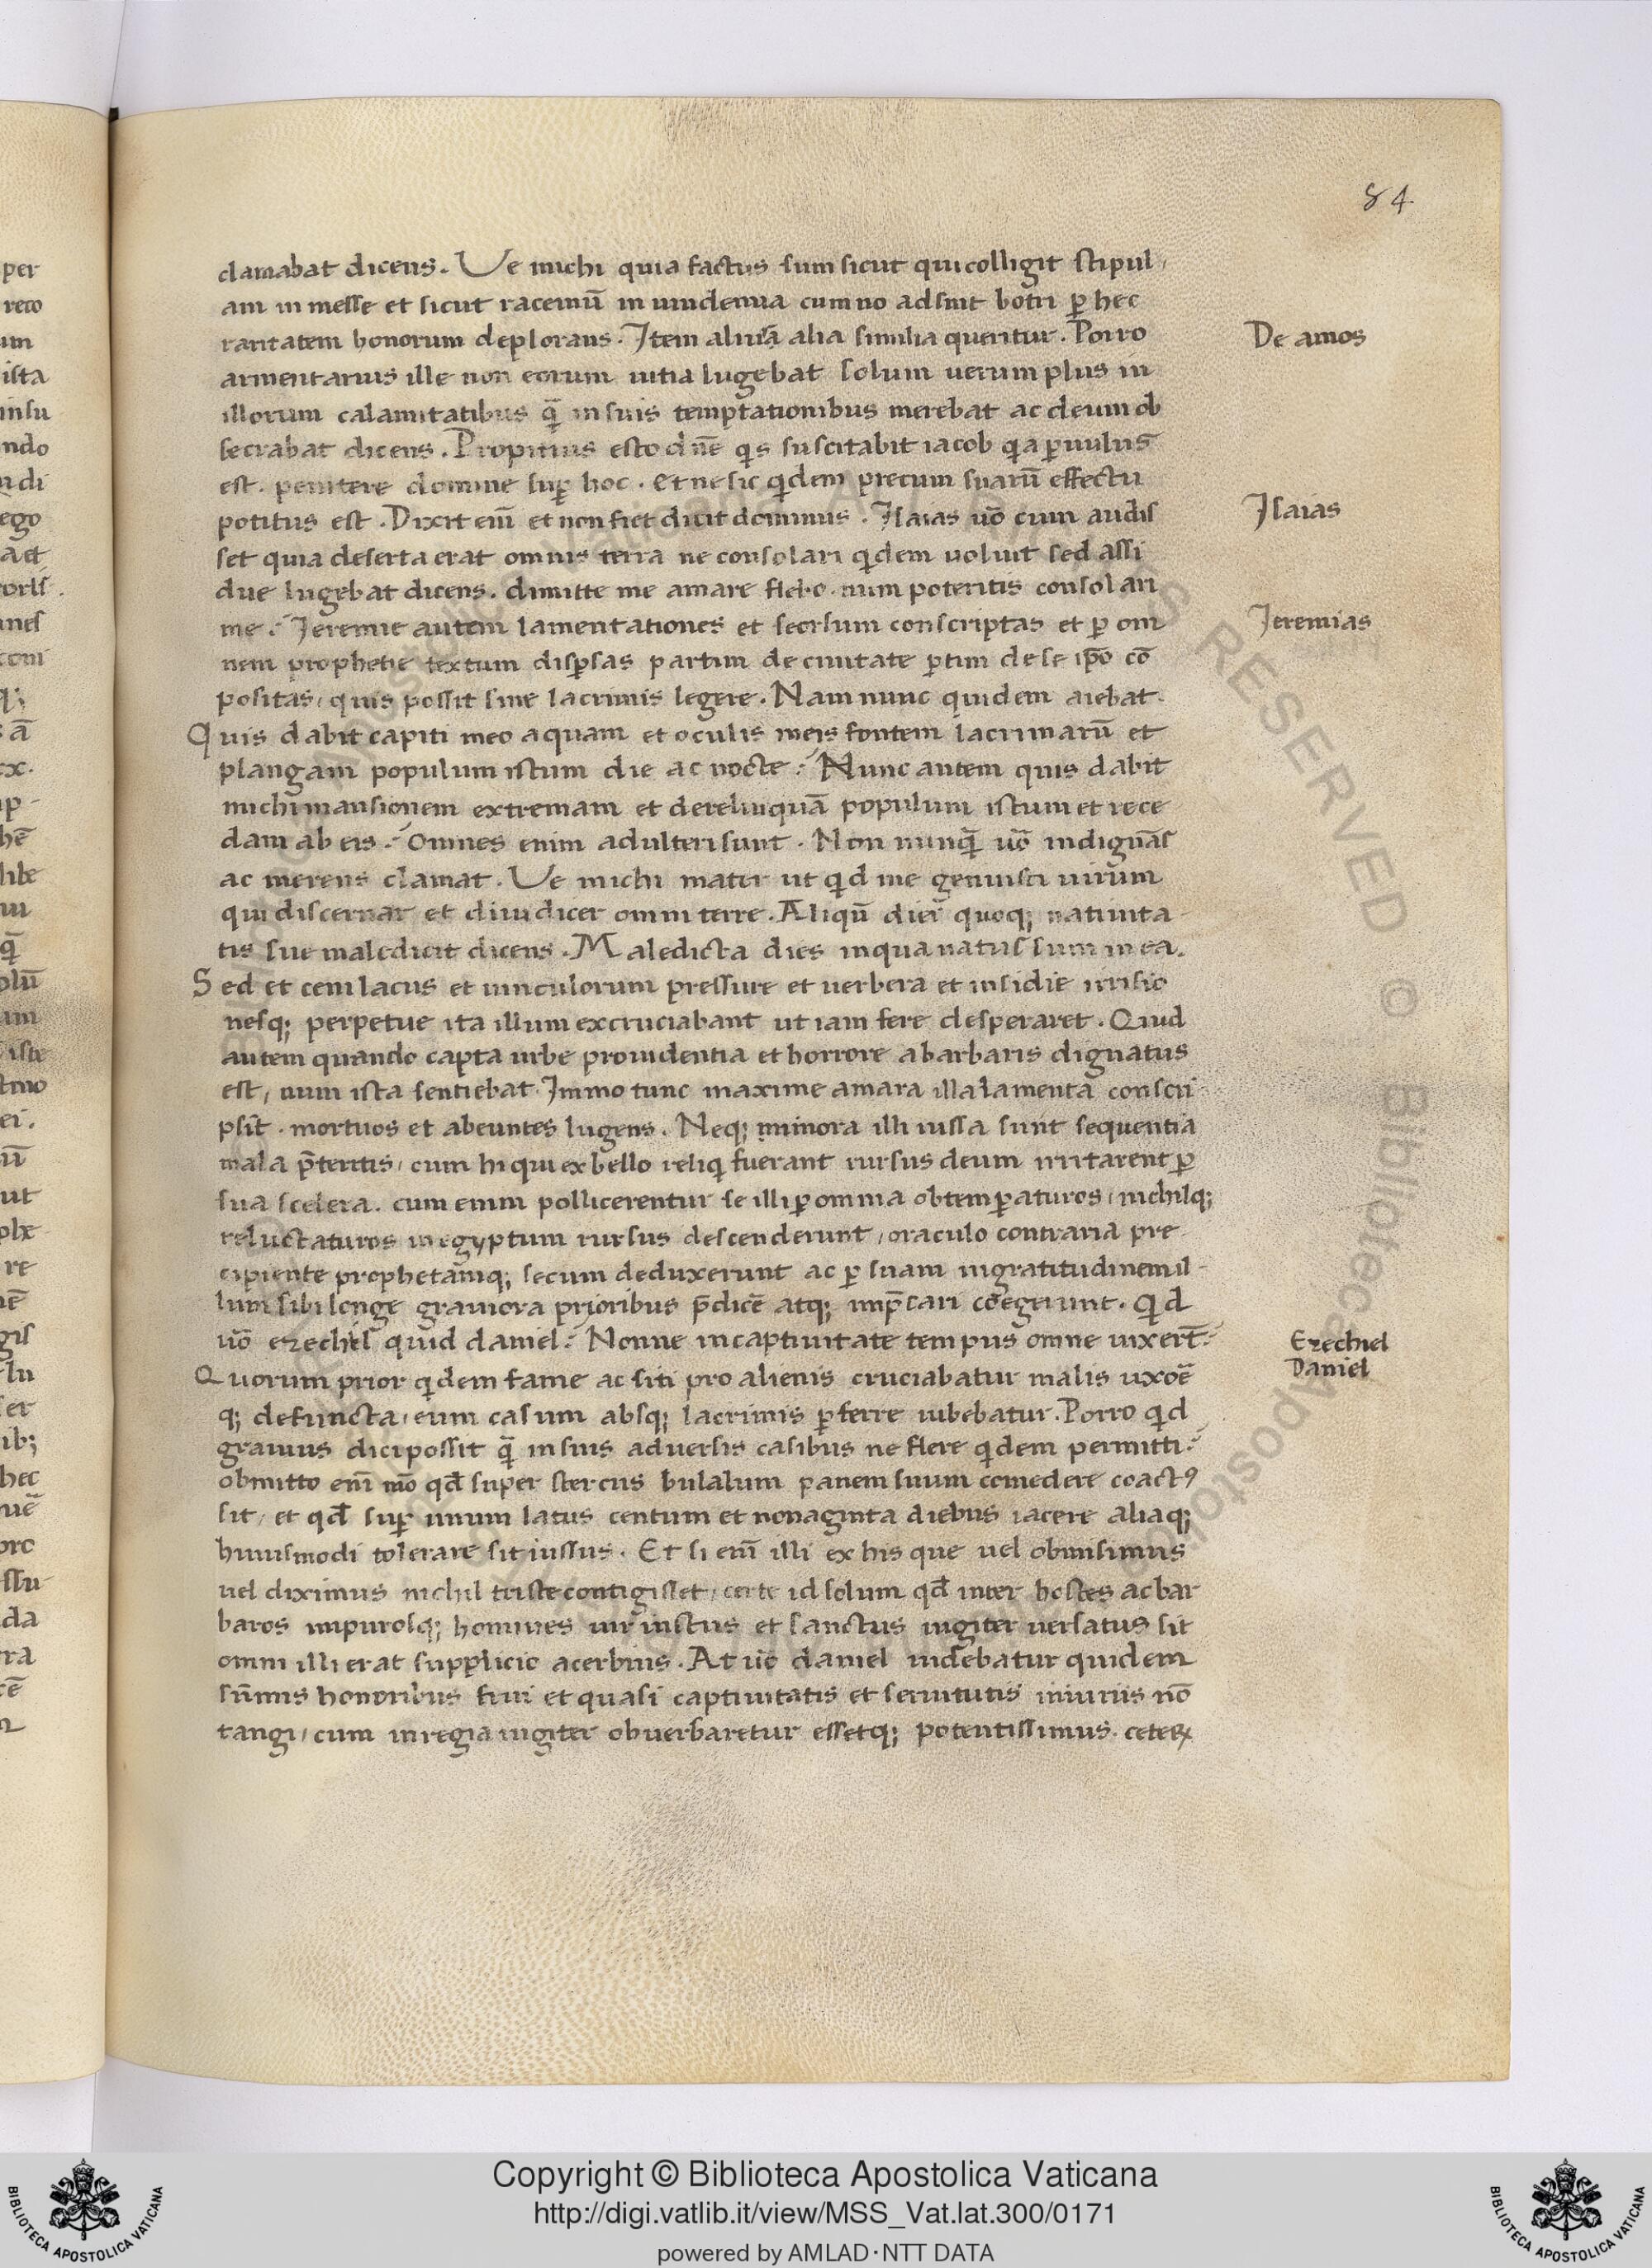 84
clamabat dicens. Ve michi quia factus sum sicut qui colligit stipul,
am in messe et sicut racemū in uindemia cum no adsint botri ꝑ hec
raritatem bonorum deplorans. Item aliuꝗ̄ alia similia queritur. Porro
De amos
armentarius ille non eorum uitia lugebat solum uerum plus in
illorum calamitatibus ꝗ̄ in suis temptationibus merebat ac deum ob
secrabat dicens. Propitius esto dn̄e qis suscitabit iacob qia ꝑuulus
est. penitere domine suꝑ hoc. et ne sic qidem precum suarū effectu
potitus est. Dixit eni᷒ et non fiet dicit dominus. Isaias uō cum audis
Isaias
set quia deserta erat omnis terra ne consolari qidem uoluit sed assi
due lugebat dicens. dimitte me amare flebo. num poteritis consolari
me. Jeremie autem lamentationes et seorsum conscriptas et ꝑ om
Jeremias
nem prophetie textum disꝑsas partim de ciuitate ꝑtim de se ip̄o cō
positas, quis possit sine lacrimis legere. Nam nunc quidem aiebat.
Quis dabit capiti meo aquam et oculis meis fontem lacrimarū et
plangam populum istum die ac nocte. Nunc autem quis dabit
michi mansionem extremam et derelinquā populum istum et rece
dam ab eis. Omnes enim adulteri sunt. Non nunꝗ̄ uō indignās
ac merens clamat. Ve michi mater ut qid me genuisti uirum
qui discernar et diiudicer omni terre. Aliqū diei quoq; natiuita-
tis sue maledicit dicens. Maledicta dies in qua natus sum in ea.
Sed et ceni lacus et uinculorum pressure et uerbera et insidie irrisio
nesq; perpetue ita illum excruciabant ut iam fere desperaret. Quid
autem quando capta urbe prouidentia et horrore a barbaris dignatus
est, num ista sentiebat. Immo tunc maxime amara illa lamenta conscri
psit. mortuos et abeuntes lugens. Neq; minora illi iussa sunt sequentia
mala p̄teritis, cum hi qui ex bello reliqi fuerant rursus deum irritarent ꝑ
sua scelera. cum enim pollicerentur se illi ꝑ omnia obtemꝑaturos, nichilq;
reluctaturos in egyptum rursus descenderunt, oraculo contraria pre-
cipiente prophetāmq; secum deduxerunt ac ꝑ suam ingratitudinem il-
lum sibi longe grauiora prioribus p̄dicē atq; imp̄cari coegerunt. Qid
uō ezechiel quid daniel. Nonne in captiuitate tempus omne uixert̄.
Ezechiel
Daniel
Quorum prior qidem fame ac siti pro alienis cruciabatur malis uxoē
q; defuncta, eum casum absq; lacrimis ꝑferre iubebatur. Porro qid
grauius dici possit ꝗ̄ in suis aduersis casibus ne flere qidem permitti.
obmitto eni᷒ mō qđ super stercus bulalum panem suum comedere coact9
sit, et qđ suꝑ unum latus centum et nonaginta diebus iacere aliaq;
huiusmodi tolerare sit iussus. Et si eni᷒ illi ex his que uel obmisimus
uel diximus nichil triste contigisset, certe id solum qđ inter hostes ac bar
baros impurosq; homines uir iustus et sanctus iugiter uersatus sit
omni illi erat supplicio acerbius. At uō daniel uidebatur quidem
sūmis honoribus frui et quasi captiuitatis et seruitutis iniuriis nō
tangi, cum in regia iugiter obuerbaretur essetq; potentissimus. ceteꝝ
Copyright © Biblioteca Apostolica Vaticana
http://digi.vatlib.it/view/MSS_Vat.lat.300/0171
powered by AMLAD·NTT DATA
BIBLIOTECA APOSTOLICA VATICANA
BIBLIOTECA APOSTOLICA VATICANA